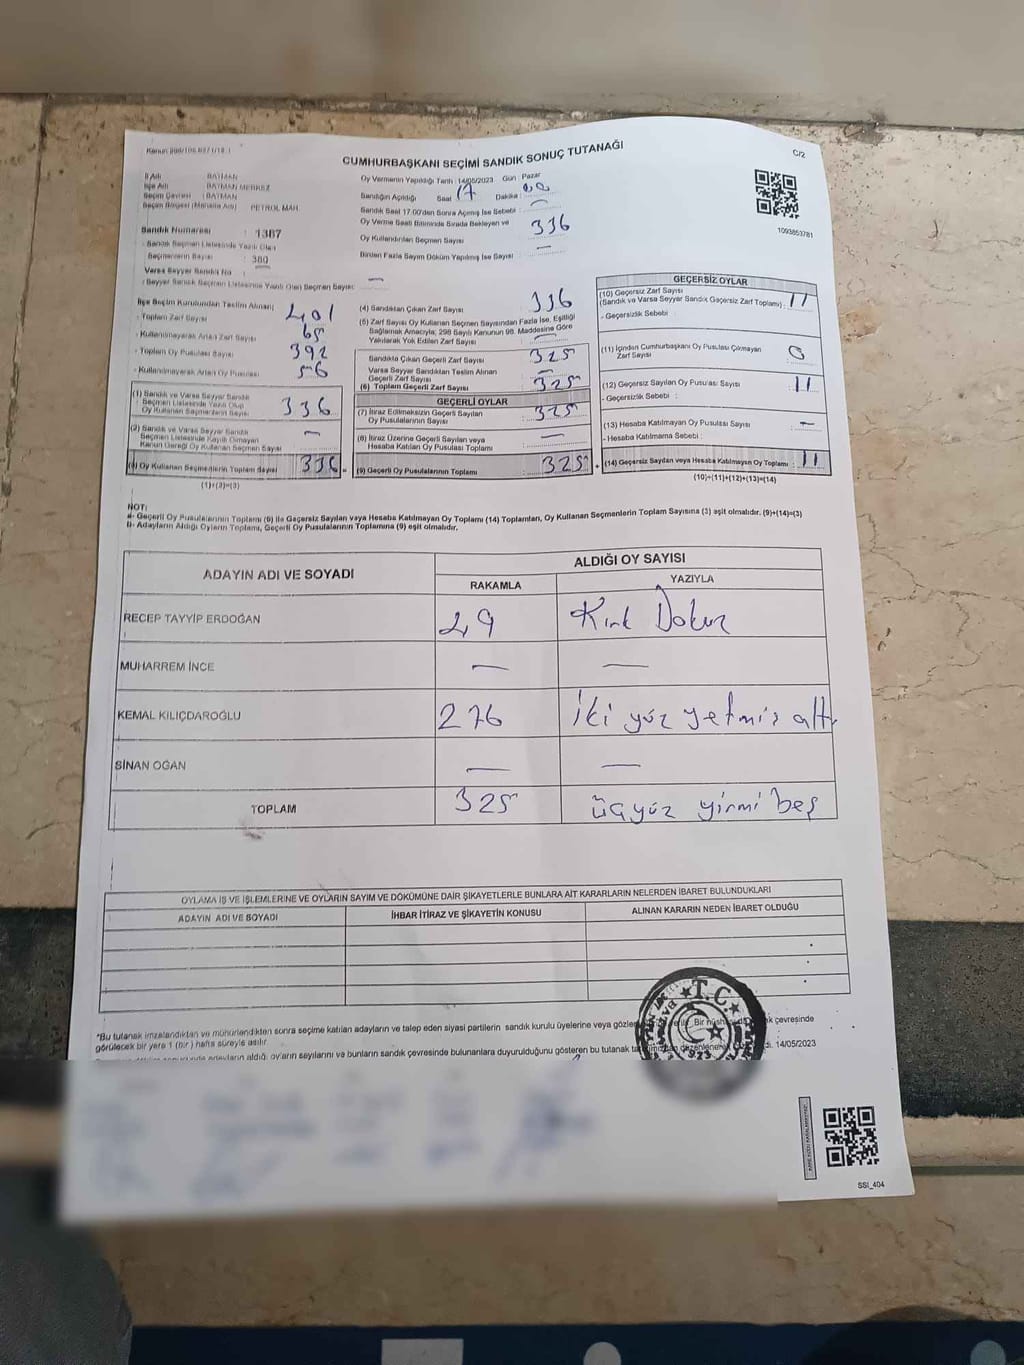 CUMHURBAŞKANI SEÇİMİ SANDIK SONUÇ TUTANAĞI
C/2
İl Adı : BATMAN
İlçe Adı : BATMAN MERKEZ
Seçim Çevresi : BATMAN
Seçim Bölgesi (Mahalle Adı) PETROL MAH.
Sandık Numarası : 1387
- Sandık Seçmen Listesinde Yazılı Olan
Seçmenlerin Sayısı : 380
Varsa Seyyar Sandık No :
- Seyyar Sandık Seçmen Listesinde Yazılı Olan Seçmen Sayısı: —
Oy Vermenin Yapıldığı Tarih :14/05/2023 Gün : Pazar
Sandığın Açıldığı Saat 17 Dakika : 00
Sandık Saat 17.00'den Sonra Açılmış İse Sebebi : —
Oy Verme Saati Bitiminde Sırada Bekleyen ve
Oy Kullandırılan Seçmen Sayısı 336
Birden Fazla Sayım Döküm Yapılmış İse Sayısı : —
1093853781
İlçe Seçim Kurulundan Teslim Alınan;
- Toplam Zarf Sayısı 401
- Kullanılmayarak Artan Zarf Sayısı 65
- Toplam Oy Pusulası Sayısı 392
- Kullanılmayarak Artan Oy Pusulası 56
(1) Sandık ve Varsa Seyyar Sandık
Seçmen Listesinde Yazılı Olup
Oy Kullanan Seçmenlerin Sayısı 336
(2) Sandık ve Varsa Seyyar Sandık
Seçmen Listesinde Kayıtlı Olmayan
Kanun Gereği Oy Kullanan Seçmen Sayısı —
(3) Oy Kullanan Seçmenlerin Toplam Sayısı 336 =
(1)+(2)=(3)
(4) Sandıktan Çıkan Zarf Sayısı 336
(5) Zarf Sayısı Oy Kullanan Seçmen Sayısından Fazla İse, Eşitliği
Sağlamak Amacıyla; 298 Sayılı Kanunun 98. Maddesine Göre
Yakılarak Yok Edilen Zarf Sayısı : —
Sandıkta Çıkan Geçerli Zarf Sayısı 325
Varsa Seyyar Sandıktan Teslim Alınan
Geçerli Zarf Sayısı —
(6) Toplam Geçerli Zarf Sayısı 325
GEÇERLİ OYLAR
(7) İtiraz Edilmeksizin Geçerli Sayılan
Oy Pusulalarının Sayısı 325
(8) İtiraz Üzerine Geçerli Sayılan veya
Hesaba Katılan Oy Pusulası Toplamı —
(9) Geçerli Oy Pusulalarının Toplamı 325 +
GEÇERSİZ OYLAR
(10) Geçersiz Zarf Sayısı
(Sandık ve Varsa Seyyar Sandık Geçersiz Zarf Toplamı) : 11
- Geçersizlik Sebebi :
(11) İçinden Cumhurbaşkanı Oy Pusulası Çıkmayan
Zarf Sayısı 0
(12) Geçersiz Sayılan Oy Pusulası Sayısı : 11
- Geçersizlik Sebebi :
(13) Hesaba Katılmayan Oy Pusulası Sayısı : —
- Hesaba Katılmama Sebebi :
(14) Geçersiz Sayılan veya Hesaba Katılmayan Oy Toplamı : 11
(10)+(11)+(12)+(13)=(14)
NOT:
a- Geçerli Oy Pusulalarının Toplamı (9) ile Geçersiz Sayılan veya Hesaba Katılmayan Oy Toplamı (14) Toplamları, Oy Kullanan Seçmenlerin Toplam Sayısına (3) eşit olmalıdır. (9)+(14)=(3)
b- Adayların Aldığı Oyların Toplamı, Geçerli Oy Pusulalarının Toplamına (9) eşit olmalıdır.
ADAYIN ADI VE SOYADI
ALDIĞI OY SAYISI
RAKAMLA YAZIYLA
RECEP TAYYİP ERDOĞAN 49 Kırk Dokuz
MUHARREM İNCE — —
KEMAL KILIÇDAROĞLU 276 İki yüz yetmiş altı
SİNAN OĞAN — —
TOPLAM 325 üçyüz yirmi beş
OYLAMA İŞ VE İŞLEMLERİNE VE OYLARIN SAYIM VE DÖKÜMÜNE DAİR ŞİKAYETLERLE BUNLARA AİT KARARLARIN NELERDEN İBARET BULUNDUKLARI
ADAYIN ADI VE SOYADI İHBAR İTİRAZ VE ŞİKAYETİN KONUSU ALINAN KARARIN NEDEN İBARET OLDUĞU
*Bu tutanak imzalandıktan ve mühürlendikten sonra seçime katılan adayların ve talep eden siyasi partilerin sandık kurulu üyelerine veya Bir çevresinde
görülecek bir yere 1 (bir) hafta süreyle asılır.
adayların aldığı oyların sayılarını ve bunların sandık çevresinde bulunanlara duyurulduğunu gösteren bu tutanak 14/05/2023
T.C.
1923
SSI_404